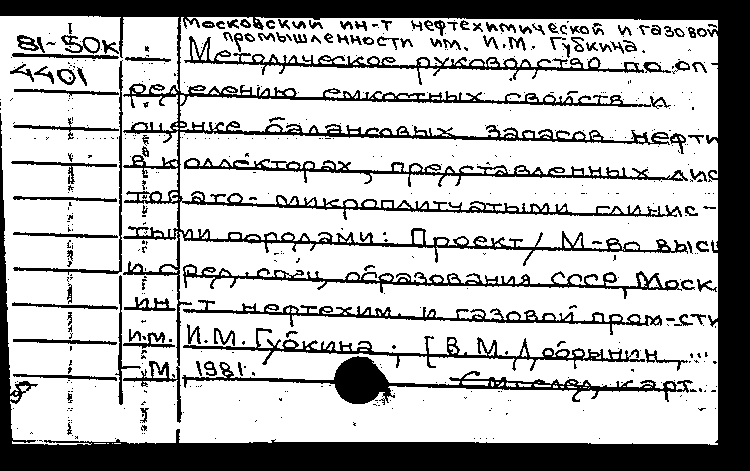 Московский ин-т нефтехимической и газовой
промышленности им. И.М. Губкина.
81-50к
4401
Методическое руководство по оп-
ределению емкостных свойств и
оценке балансовых запасов нефти
в коллекторах, представленных лис
товато-микроплитчатыми глинис-
тыми породами: Проект/ М-во высш
и сред. спец. образования СССР, Моск.
ин-т нефтехим. и газовой пром-сти
им. И.М. Губкина; [В.М. Добрынин,...
- М., 1981.
См. след. карт.